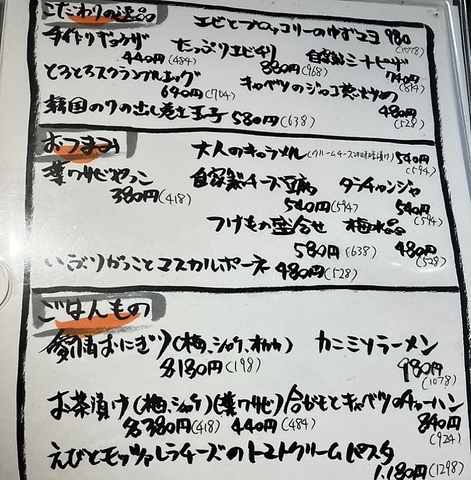 こだわりの逸品
エビとブロッコリーのゆずマヨ 980 (1078)
手作りギョウザ 440円(484)
たっぷりエビチリ 880円(968)
自家製ミートピザ 740円(814)
とろとろスクランブルエッグ 640円(704)
キャベツのジャコ炒め 480円(528)
韓国のりの出し巻き玉子 580円(638)
おつまみ
大人のキャラメル(クリームチーズの味噌漬け) 540円(594)
葉ワサビやっこ 380円(418)
自家製チーズ豆腐 540円(594)
タンチャンジャ 540円(594)
つけもの盛合せ 580円(638)
梅水晶 480円(528)
いぶりがっことマスカルポーネ 480円(528)
ごはんもの
おにぎり(梅、シャケ、オカカ) 各180円(198)
カニミソラーメン 980円(1078)
お茶漬け(梅、シャケ)(葉ワサビ) 各380円(418) 440円(484)
合がもとキャベツのチャーハン 840円(924)
えびとモッツァレラチーズのトマトクリームパスタ 1,180円(1298)